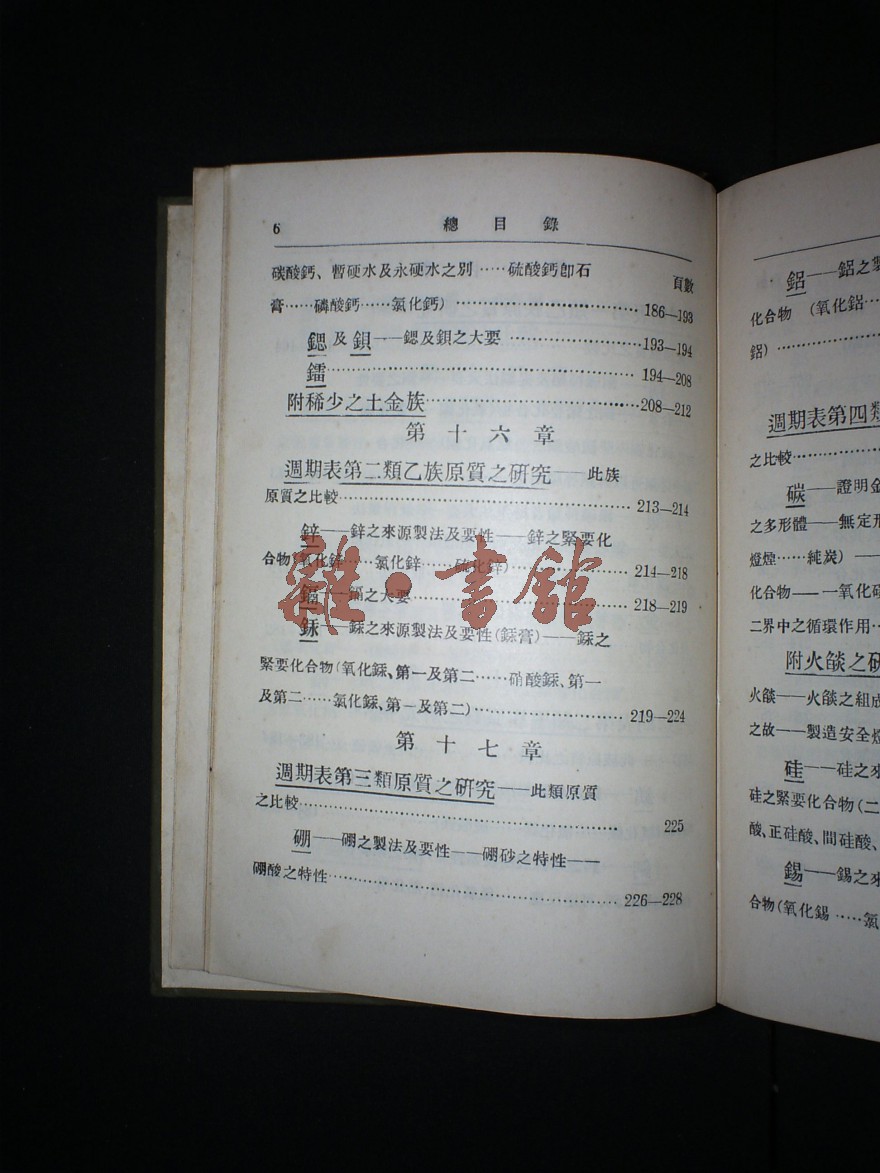 6
總目錄
頁數
碳酸鈣、暫硬水及永硬水之別……硫酸鈣卽石
膏……磷酸鈣……氯化鈣)……186—193
鍶及鋇——鍶及鋇之大要……193—194
鐳……194—208
附稀少之土金族……208—212
第十六章
週期表第二類乙族原質之研究——此族
原質之比較……213—214
鋅——鋅之來源製法及要性——鋅之緊要化
合物(氧化鋅……氯化鋅……硫化鋅)……214—218
鎘——鎘之大要……218—219
銾——銾之來源製法及要性(銾膏)——銾之
緊要化合物(氧化銾、第一及第二……硝酸銾、第一
及第二……氯化銾、第一及第二)……219—224
第十七章
週期表第三類原質之研究——此類原質
之比較……225
硼——硼之製法及要性——硼砂之特性——
硼酸之特性……226—228
雜·書館
鋁——鋁之製
化合物 (氧化鋁……
鋁)……
週期表第四類
之比較……
碳——證明金
之多形體——無定形
燈煙……純炭)——
化合物——一氧化碳
二界中之循環作用……
附火燄之研
火燄——火燄之組成
之故——製造安全燈
硅——硅之來
硅之緊要化合物(二
酸、正硅酸、間硅酸、
錫——錫之來
合物(氧化錫……氯